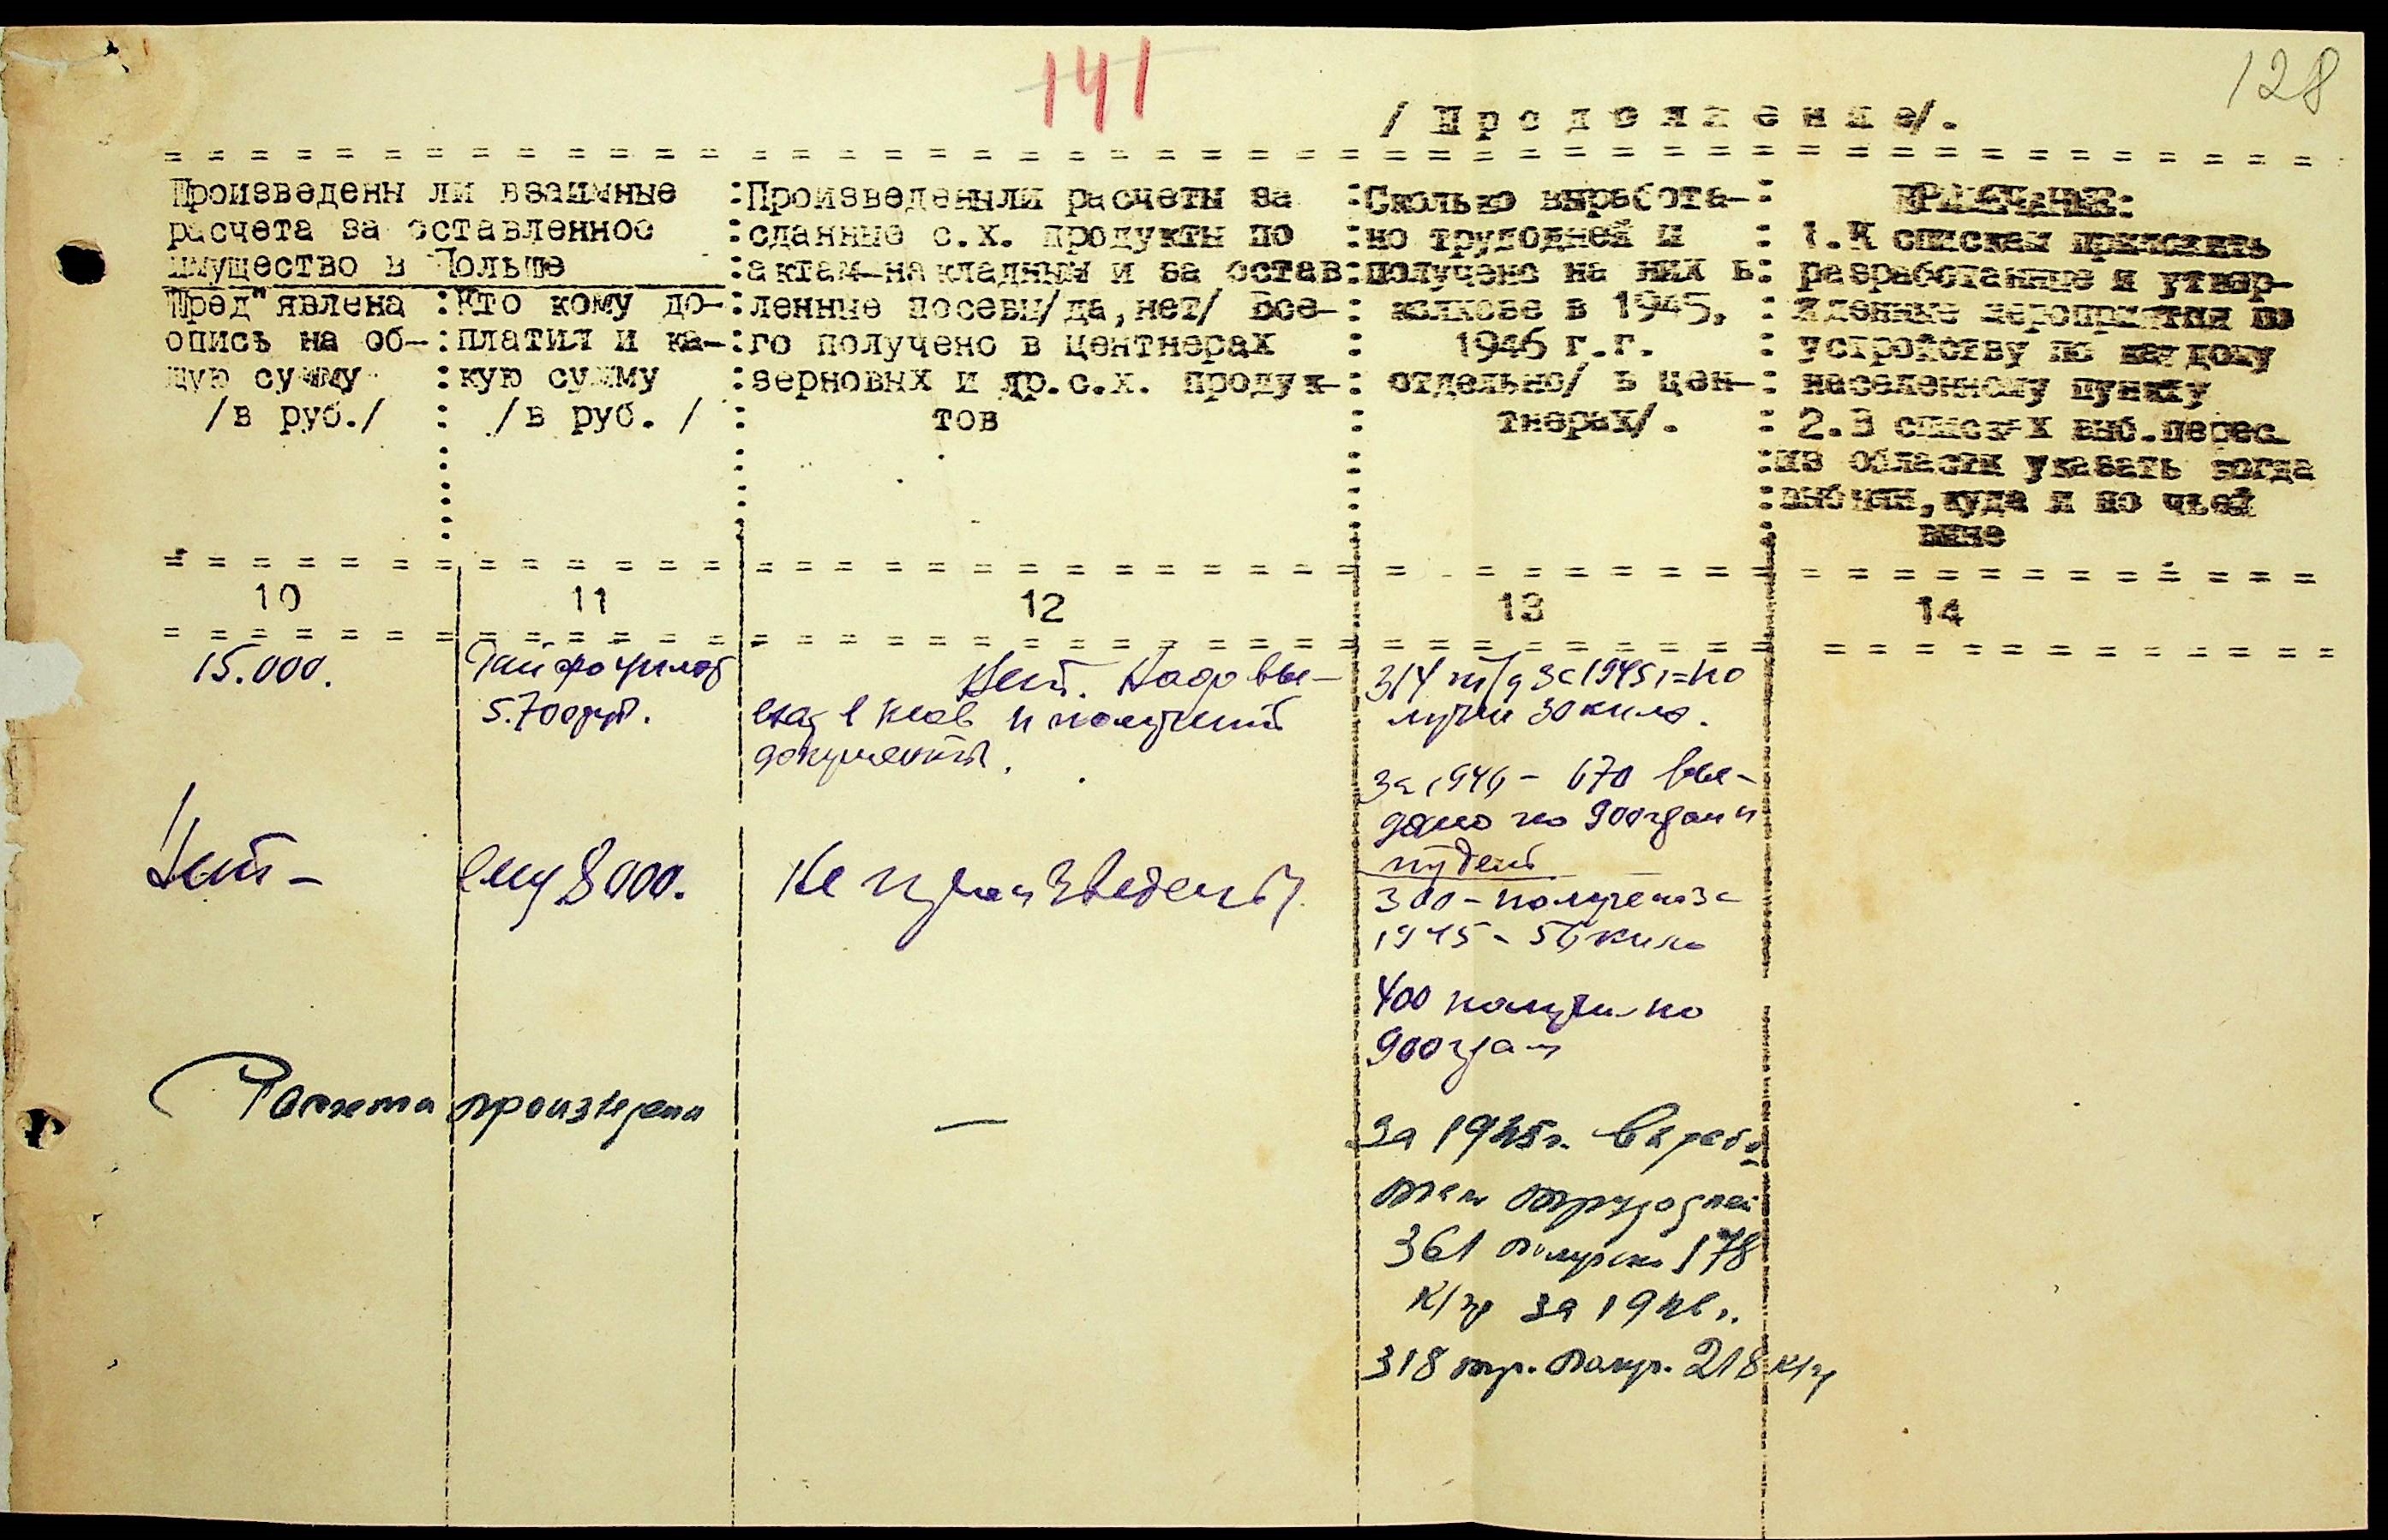 141
128
/ П р о д о л ж е н и е/.
Произведены ли взаимные
расчета за оставленное
имущество в Польше
Пред"явлена
опись на об-
щую сумму
/в руб./
Кто кому до-
платил и ка-
кую сумму
/в руб. /
Произведенили расчеты за
сданные с.х. продукты по
актам-накладным и за остав
ленные посевы/да,нет/ Все-
го получено в центнерах
зерновых и др.с.х. продук-
тов
Сколько выработа-
но трудодней и
получено на них в
колхозе в 1945,
1946 г.г.
отдельно/ в цен-
тнерах/.
ПРИМЕЧАНИЕ:
1.К спискам приложить
разработанные и утвер-
жденные мероприятия по
устройству по каждому
населенному пункту
2.В списках выб.перес.
из области указать когда
выбыли,куда и по чьей
вине
10
11
12
13
14
15.000.
5.700руб.
Нет. Надо вы-
и получить
документы.
314 т/д за 1945г=по
лучил 30 кило.
За 1946 - 670 вы-
дано по 900грам и
будет
300 - получено за
1945 - 56 кило
400 получил по
900грам
Нет -
ему 8000.
Не произведены.
Расчета произведени
—
За 1945г. вырабо
тан трудодней
361 получено 178
К/гр за 1946г.
318 тр. получ. 218 к/гр